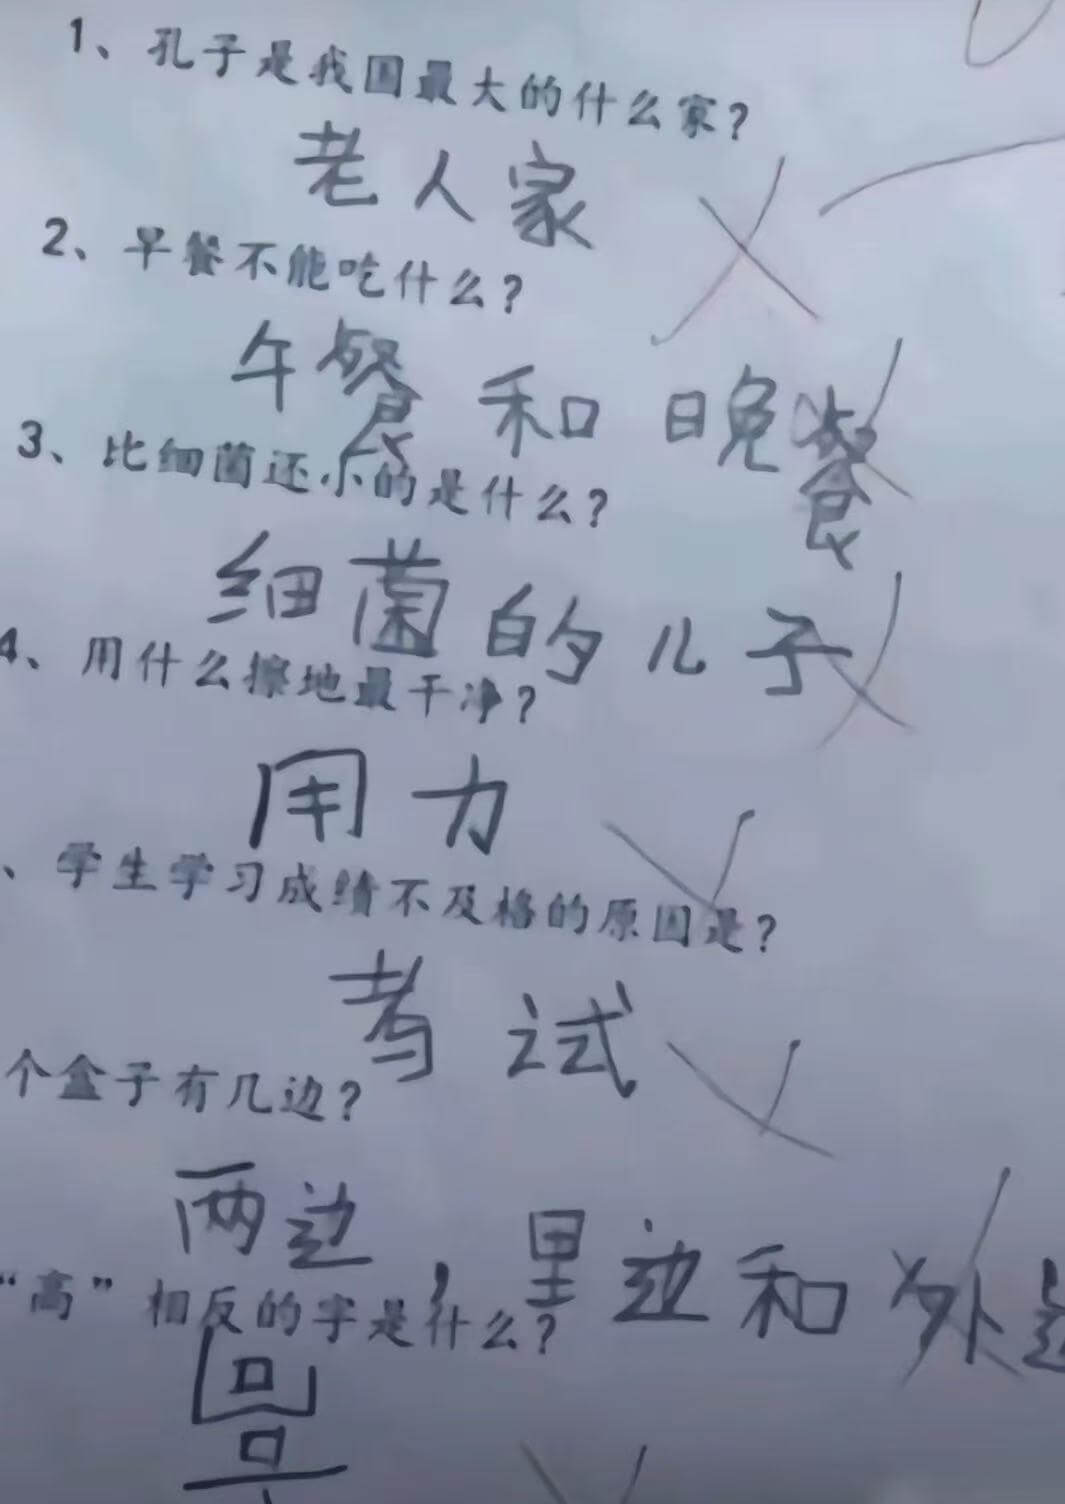 1、孔子是我国最大的什么家？
老人家
2、早餐不能吃什么？
午餐和晚餐
3、比细菌还小的是什么？
细菌的儿子
4、用什么擦地最干净？
用力
、学生学习成绩不及格的原因是？
考试
个盒子有几边？
两边，里边和外边
“高”相反的字是什么？